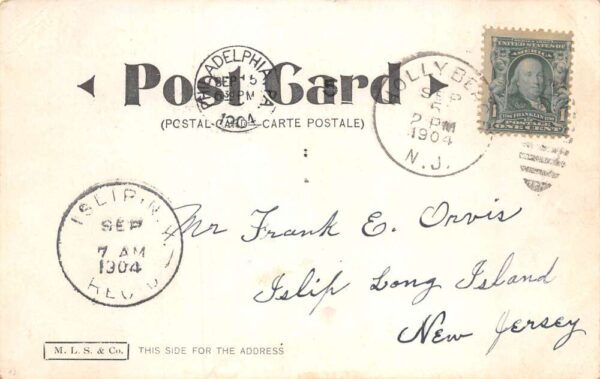 PHILADELPHIA, PA.
SEP 5
6 30 PM
1904
Post Card
(POSTAL CARD—CARTE POSTALE)
HOLLY BEACH
SEP
5
2 PM
1904
N.J.
UNITED STATES OF AMERICA
1 FRANKLIN 1
POSTAGE
ONE CENT
ISLIP, N.Y.
SEP
7 AM
1904
REC'D
Mr Frank E. Orvis
Islip Long Island
New Jersey
M. L. S. & Co. THIS SIDE FOR THE ADDRESS